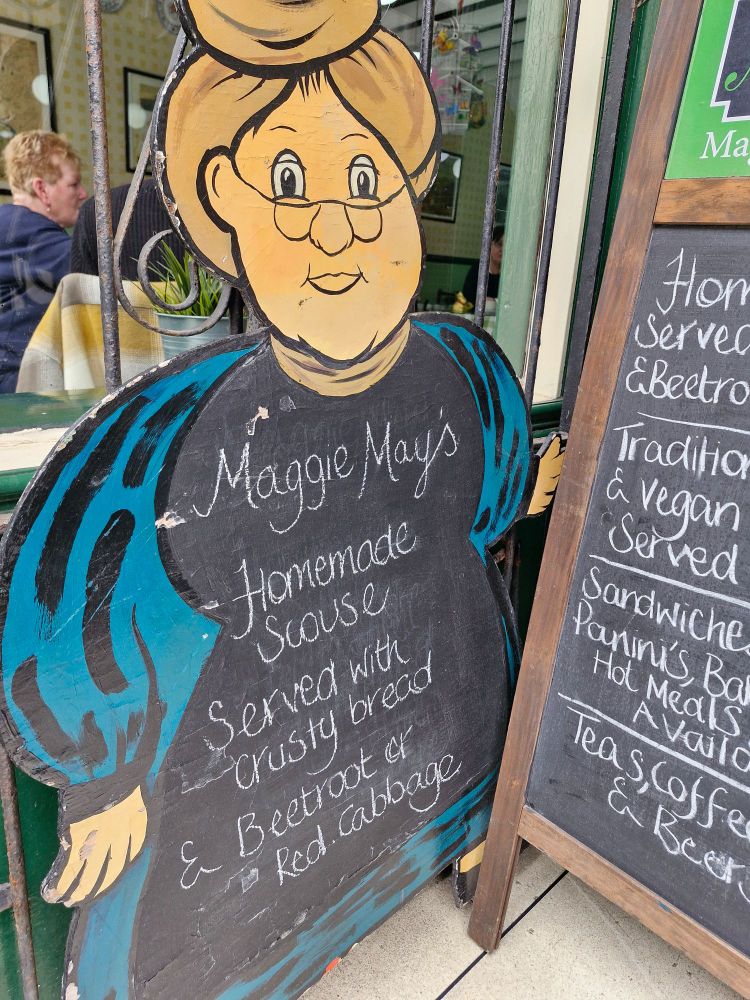 Maggie May's
Homemade
Scouse
Served with
crusty bread
& Beetroot or
Red Cabbage
Ma
Hom
Served
& Beetro
Traditio
& vegan
Served
Sandwiches
Panini's, Ba
Hot Meals
Availa
Teas, Coffe
& Beers